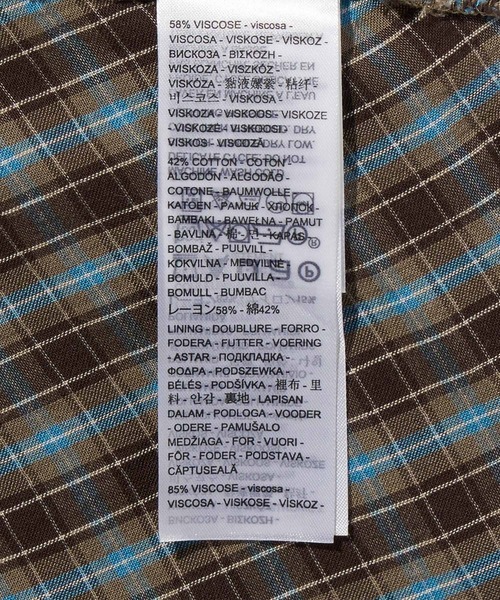 58% VISCOSE - viscosa -
VISCOSA - VISKOSE - VİSKOZ -
ВИСКОЗА - ΒΙΣΚΟΖΗ -
WISKOZA - VISZKÓZ -
VISKOZA - 黏液嫘縈 - 粘纤 -
비스코스 - VISKOSA -
VISKOZA - VISKOOS - VISKOZE
- VISKOZĖ - VISKOOSI -
VISKOS - VISCOZĂ
42% COTTON - COTON -
ALGODÓN - ALGODÃO -
COTONE - BAUMWOLLE -
KATOEN - PAMUK - ХЛОПОК -
ΒΑΜΒΑΚΙ - BAWEŁNA - PAMUT
- BAVLNA - 棉 - 면 - KAPAS -
BOMBAŽ - PUUVILL -
KOKVILNA - MEDVILNĖ -
BOMULD - PUUVILLA -
BOMULL - BUMBAC
レーヨン58% - 綿42%
LINING - DOUBLURE - FORRO -
FODERA - FUTTER - VOERING
- ASTAR - ПОДКЛАДКА -
ΦΟΔΡΑ - PODSZEWKA -
BÉLÉS - PODŠÍVKA - 裡布 - 里
料 - 안감 - 裏地 - LAPISAN
DALAM - PODLOGA - VOODER
- ODERE - PAMUŠALO
MEDŽIAGA - FOR - VUORI -
FÔR - FODER - PODSTAVA -
CĂPTUSEALĂ
85% VISCOSE - viscosa -
VISCOSA - VISKOSE - VİSKOZ -
ВИСКОЗА - ΒΙΣΚΟΖΗ -